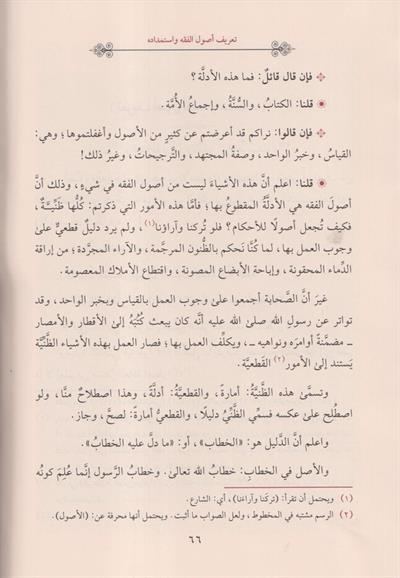 تعريف أصول الفقه واستمداده
فإن قال قائلٌ: فما هذه الأدلَّة؟
قلنا: الكتابُ، والسُّنَّةُ، وإجماعُ الأُمَّة.
فإن قالوا: نراكم قد أعرضتم عن كثيرٍ من الأصول وأغفلتموها؛ وهي:
القياسُ، وخبرُ الواحد، وصفةُ المجتهد، والتَّرجيحاتُ، وغيرُ ذلك!
قلنا: اعلم أنَّ هذه الأشياءَ ليست من أصول الفقه في شيءٍ، وذلك أنَّ
أصولَ الفقه هي الأدلَّةُ المقطوعُ بها؛ فأمَّا هذه الأمور التي ذكرتم: كلُّها ظَنِّيَّةٌ،
فكيف تُجعل أصولًا للأحكام؟ فلو تُركنا وآراؤنا(١)، ولم يرد دليلٌ قطعيٌّ على
وجوب العمل بها، لما كُنَّا نَحكم بالظُّنون المرجَّمة، والآراء المجرَّدة؛ من إراقة
الدِّماء المحقونة، وإباحة الأبضاع المصونة، واقتطاع الأملاك المعصومة.
غيرَ أنَّ الصَّحابة أجمعوا على وجوب العمل بالقياس وبخبر الواحد، وقد
تواتر عن رسولِ الله صلى الله عليه أنَّه كان يبعث كُتُبَهُ إلى الأقطار والأمصار
ـ مضمَّنةً أوامرَه ونواهيه ـ، ويكلِّف العمل بها؛ فصار العمل بهذه الأشياء الظَّنِّيَّة
يَستند إلى الأمور(٢) القَطعيَّة.
وتسمَّى هذه الظَّنِّيَّةُ: أمارةً، والقطعيَّةُ: أدلّةً، وهذا اصطلاحٌ منَّا، ولو
اصطُلِح على عكسه فسمِّي الظَّنِّيُّ دليلًا، والقطعيُّ أمارةً: لصحَّ، وجاز.
واعلم أنَّ الدَّليل هو: «الخطاب»، أو: «ما دلَّ عليه الخطابُ».
والأصل في الخطاب: خطابُ الله تعالىٰ. وخطابُ الرَّسول إنَّما عُلِمَ كونُه
(١) ويحتمل أن تقرأ: (تَركَنا وآراءَنا)، أي: الشارع.
(٢) الرسم مشتبه في المخطوط، ولعل الصواب ما أثبت. ويحتمل أنها محرفة عن: (الأصول).
٦٦